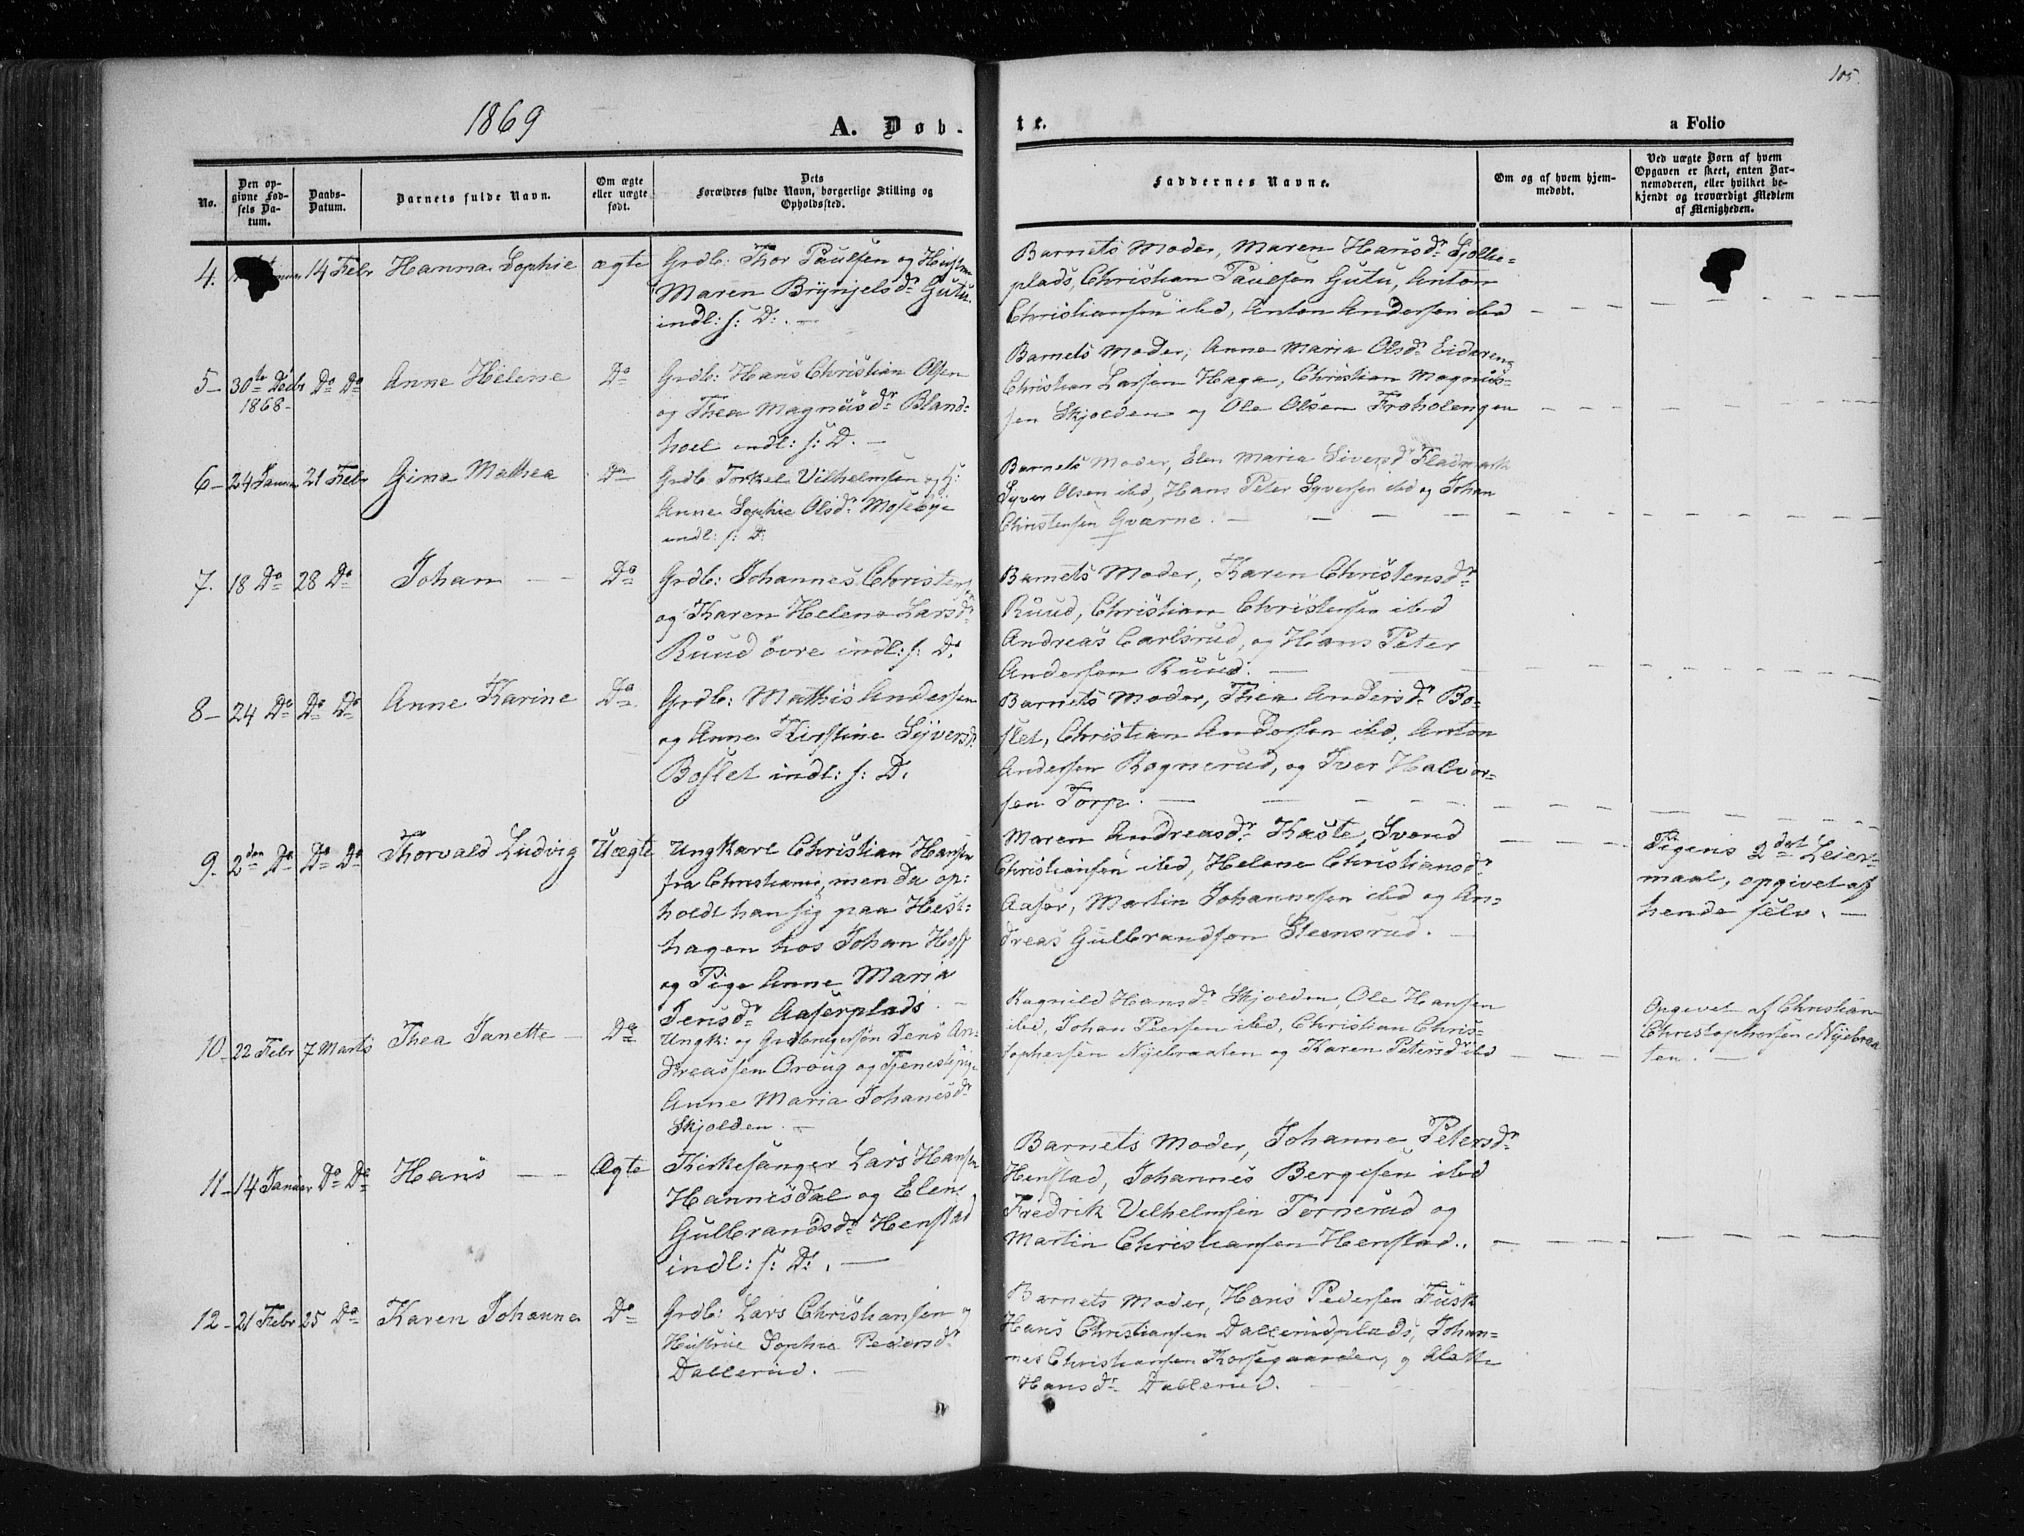 105.
1869
A. Døb-
te.
a Folio
No.
Den op-
givne Fød-
sels Da-
tum.
Daabs-
Datum.
Barnets fulde Navn.
Om ægte
eller uægte
født.
Dets
Forældres fulde Navn, borgerlige Stilling og
Opholdssted.
Faddernes Navne.
Om og af hvem hjem-
medøbt.
Ved uægte Børn af hvem
Opgaven er skeet, enten Bar-
nemoderen, eller hvilket be-
kjendt og troværdigt Medlem
af Menigheden.
4.
14 Febr
Hanna Sophie
ægte
Grdb: Thor Paulsen og
Maren Brynjelsdr Gutu
indl: s: D:. —
Barnets Moder, Maren Hansdr
plads, Christian Paulsen Gutu, Anton
Christiansen ibd, Anton Andersen ibd
5 –
30te
1868 –
Do Do
Anne Helene
Do
Grdb: Hans Christian Olsen
og Thea Magnusdr Bland-
hoel indl: s: D. —
Barnets Moder, Anne Maria Olsdr Eidereng
Christian Larsen Haga, Christian Magnus-
sen Skjolden og Ole Olsen Froholengen
6 –
24 Januar
21 Febr
Gina Mathea
Do
Grdb Torkel Vilhelmsen og H:
Anne Sophie Olsdr Mosebye
indl: s: D:
Barnets Moder, Elen Maria Siversdr Fladmark
Syver Olsen ibd, Hans Peter Syversen ibd og Johan
Christensen Gvarne. —
7.
18 Do
28 Do
Johan —
Do
Grdb: Johannes Christensen
og Karen Helene Larsdr
Ruud øvre indl: s: D.
Barnets Moder, Karen Christensdr
Ruud, Christian Christensen ibd
Andreas Carlsrud, og Hans Peter
Andersen Ruud. —
8 –
24 Do
Do Do
Anne Karine
Do
Grdb: Mathis Andersen
og Anne Kirstine Syversdr
Boslet indl: s: D.
Barnets Moder, Thea Andersdr Bo-
slet, Christian Andersen ibd, Anton
Andersen Rognerud, og Iver Halvor-
sen Torp. —
9.
2den Do
Do Do
Thorvald Ludvig
Uægte
Ungkarl Christian Hansen
fra Christiania, men da op-
holdt han sig paa Hest-
hagen hos Johan Hoff
og Pige Anne Maria
Jensdr Aaserplads. —
Maren Andreasdr Kaste, Svend
Christiansen ibd, Helene Christiansdr
Aaser, Martin Johannesen ibd og An-
dreas Gulbrandsen Steensrud. —
Pigens 2det Leier-
maal, opgivet af
hende selv. —
10 –
22 Febr
7 Marts
Thea Janette —
Do
Ungk: og Grdbrugersøn Jens An-
dreassen Oroug og Tjenestepige
Anne Maria Johanesdr
Skjolden. —
Ragnild Hansdr Skjolden, Ole Hansen
ibd, Johan Peersen ibd, Christian Chris-
tophersen Nyebraaten og Karen Petersdr ibd
Opgevet af Christian
Christophersen Nyebraa
ten. —
11 –
14 Januar
Do Do
Hans —
Ægte
Kirkesanger Lars Hansen
Hannisdal og Elen
Gulbrandsdr Henstad
indl: s: D:. —
Barnets Moder, Johanne Petersdr
Henstad, Johannes Bergesen ibd
Fredrik Vilhelmsen Tornerud og
Martin Christiansen Henstad.
12 –
21 Febr
25 Do
Karen Johanne
Do
Grdb: Lars Christiansen og
Hustrue Sophie Pedersdr
Dallerud. —
Barnets Moder, Hans Pedersen Fusk
Hans Christiansen Dallerudplads, Johan-
nes Christiansen Korsegaarden, og
Hansdr Dallerud.